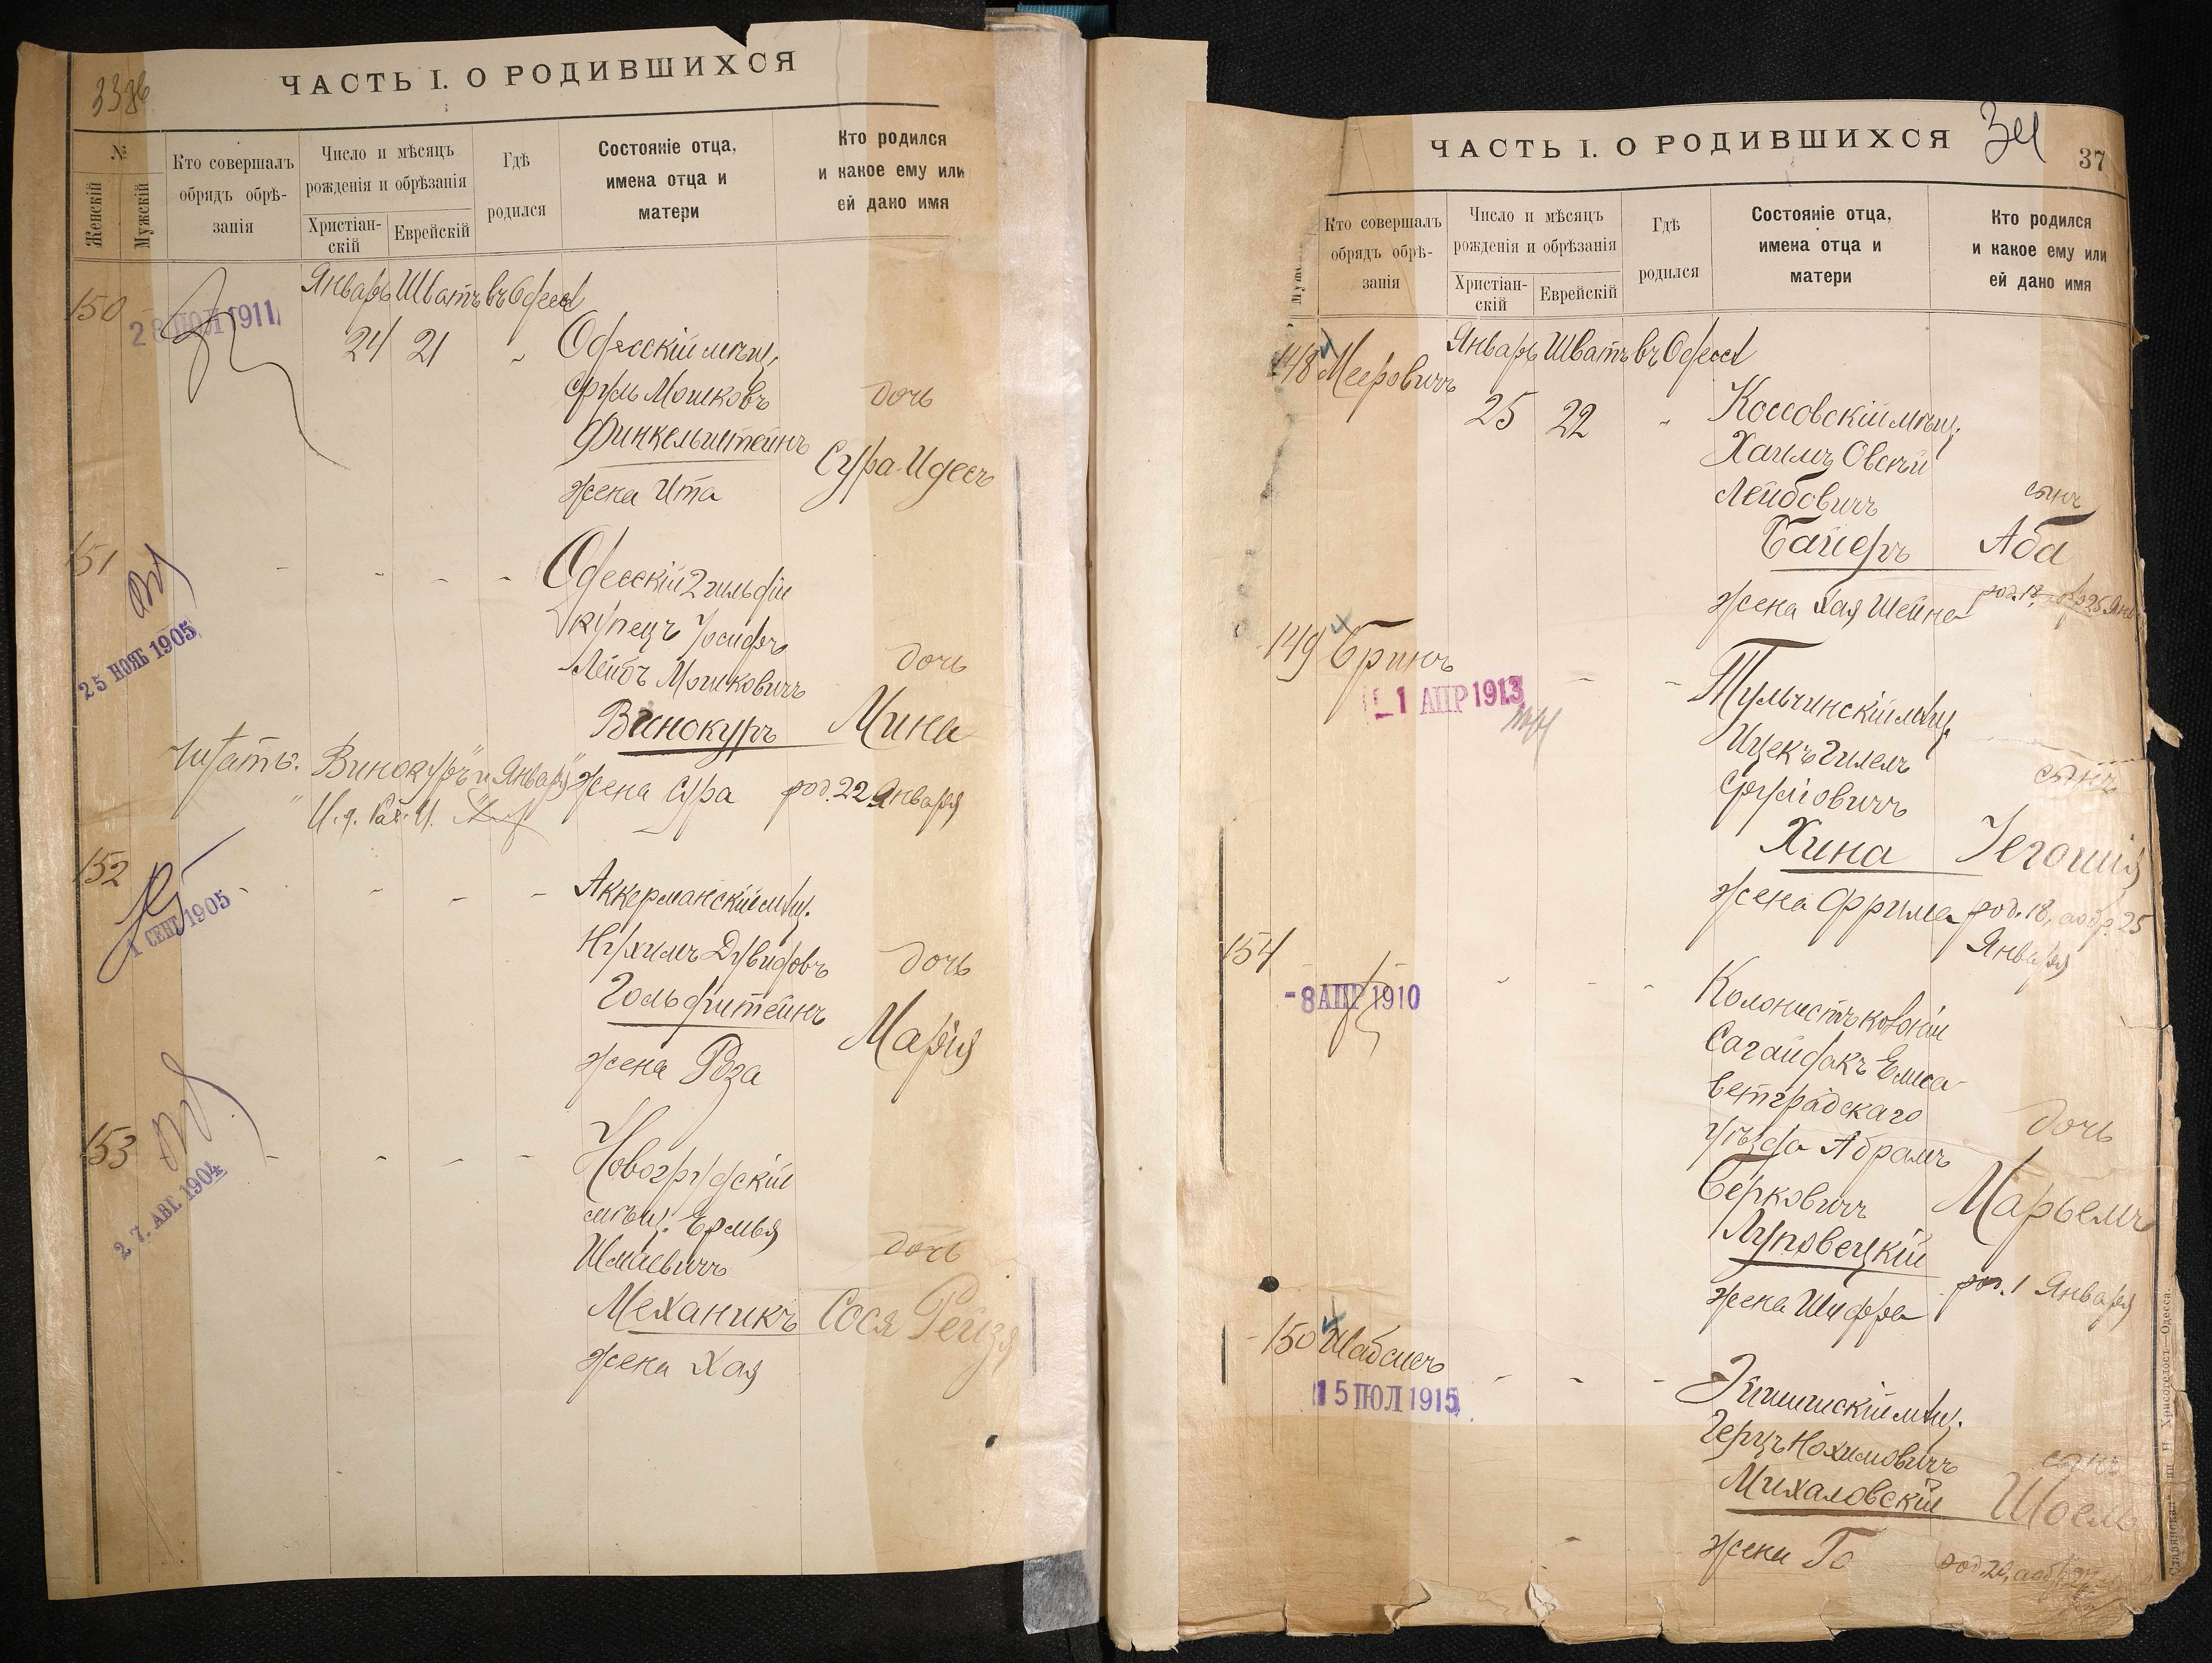 ЧАСТЬ I. О РОДИВШИХСЯ
№
Женскій
Мужскій
Кто совершалъ
обрядъ обрѣ-
занія
Число и мѣсяцъ
рожденія и обрѣзанія
Христіан-
скій
Еврейскій
Гдѣ
родился
Состояніе отца,
имена отца и
матери
Кто родился
и какое ему или
ей дано имя
Январь Шватъ въ Одессѣ
150
28 ІЮЛ 1911
24 21 „ Одесскій мѣщ.
Сруль Мошковъ дочь
Финкельштейнъ Сура-Идесъ
жена Ита
151 - - - - Одесскій 2 гильдіи
25 НОЯБ 1905
купецъ Іосифъ
Лейбъ Мошковичъ дочь
Винокуръ Мина
жена Сура род. 22 Января
Читать: „Винокуръ" и „Января"
152
1 СЕНТ 1905
- - - - Аккерманскій мѣщ.
Нухимъ Дувидовъ дочь
Гольдштейнъ Марія
жена Роза
153
27. АВГ. 1904
- - - - Новогрудскій
мѣщ.
Шмаевичъ дочь
Механикъ Сося Рейзя
жена Хая
ЧАСТЬ I. О РОДИВШИХСЯ
37
Кто совершалъ
обрядъ обрѣ-
занія
Число и мѣсяцъ
рожденія и обрѣзанія
Христіан-
скій
Еврейскій
Гдѣ
родился
Состояніе отца,
имена отца и
матери
Кто родился
и какое ему или
ей дано имя
Январь Шватъ въ Одессѣ
148 Мееровичъ
25 22 „ Коссовскій мѣщ.
Хаимъ Овсѣй
Лейбовичъ сынъ
Байеръ Аба
жена Хая Шейна род. 18, обр 25 Янв
149 Бринъ
1 АПР 1913
- - Тульчинскій мѣщ.
Ицекъ Гилель
Сруловичъ сынъ
Хина
жена Фрима род. 18, а обр. 25
Января
154
-8 АПР 1910
- - - Колонистъ колоніи
Сагайдакъ Елиса-
ветградскаго
уѣзда Абрамъ дочь
Берковичъ Марьемъ
Луповецкій
жена Шифра род. 1 Января
150 Шабсисъ
15 ІЮЛ 1915
- - -
Герцъ Нохимовичъ сынъ
Михаловскій Шоель
жена